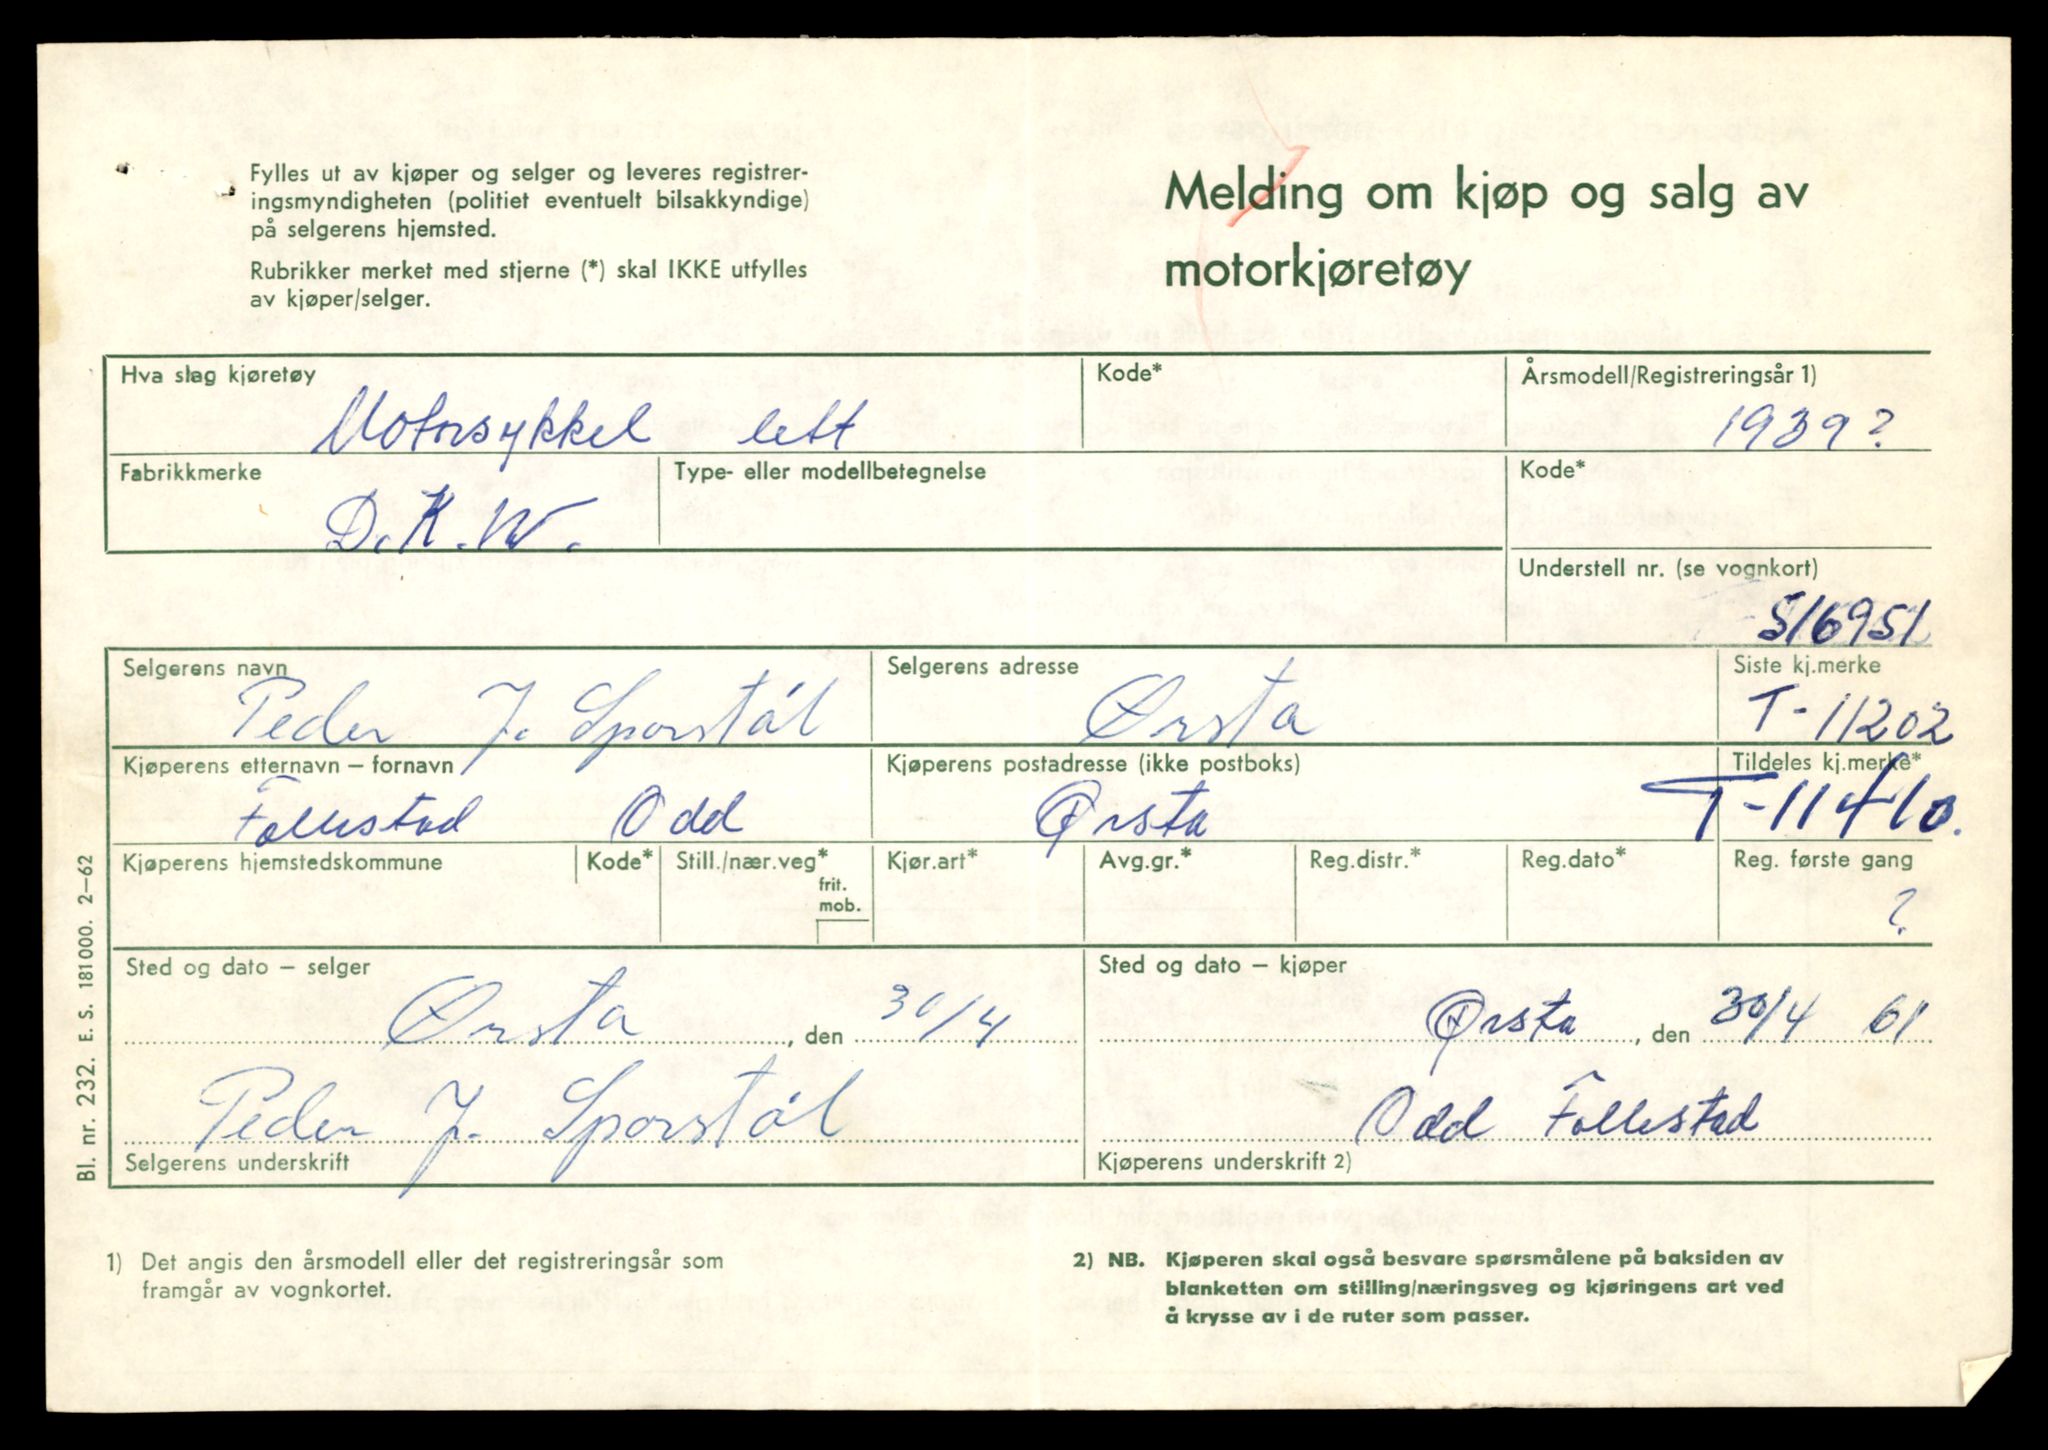 Fylles ut av kjøper og selger og leveres registrer-
ingsmyndigheten (politiet eventuelt bilsakkyndige)
på selgerens hjemsted.
Rubrikker merket med stjerne (*) skal IKKE utfylles
av kjøper/selger.
Melding om kjøp og salg av
motorkjøretøy
Hva slag kjøretøy
Motorsykkel lett
Kode*
Årsmodell/Registreringsår 1)
1939?
Fabrikkmerke
D.K.W.
Type- eller modellbetegnelse
Kode*
Understell nr. (se vognkort)
516951
Selgerens navn
Peder J. Sporstøl
Selgerens adresse
Ørsta
Siste kj.merke
T-11202
Kjøperens etternavn – fornavn
Follestad Odd
Kjøperens postadresse (ikke postboks)
Ørsta
Tildeles kj.merke*
T-11410.
Kjøperens hjemstedskommune
Kode*
Still./nær.veg*
frit.
mob.
Kjør.art*
Avg.gr.*
Reg.distr.*
Reg.dato*
Reg. første gang
?
Sted og dato – selger
Ørsta, den 30/4
Peder J. Sporstøl
Selgerens underskrift
Sted og dato – kjøper
Ørsta, den 30/4 61
Odd Follestad
Kjøperens underskrift 2)
Bl. nr. 232. E. S. 181000. 2–62
1) Det angis den årsmodell eller det registreringsår som
framgår av vognkortet.
2) NB. Kjøperen skal også besvare spørsmålene på baksiden av
blanketten om stilling/næringsveg og kjøringens art ved
å krysse av i de ruter som passer.